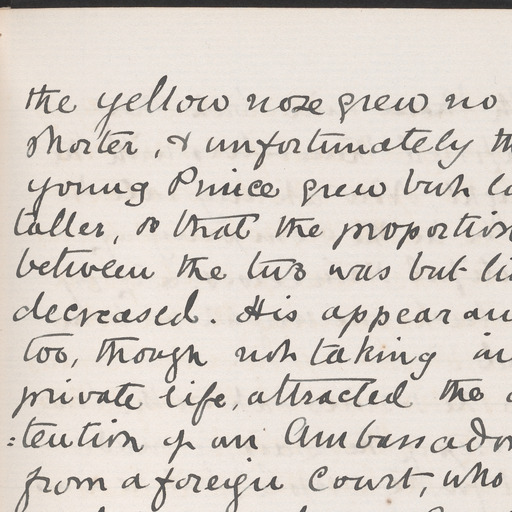 the yellow nose grew no
shorter, & unfortunately th
young Prince grew but
taller, so that the proportion
between the two was but
decreased. His appearan
too, though not taking in
private life, attracted the
:tention of an Ambassador
from a foreign Court, who